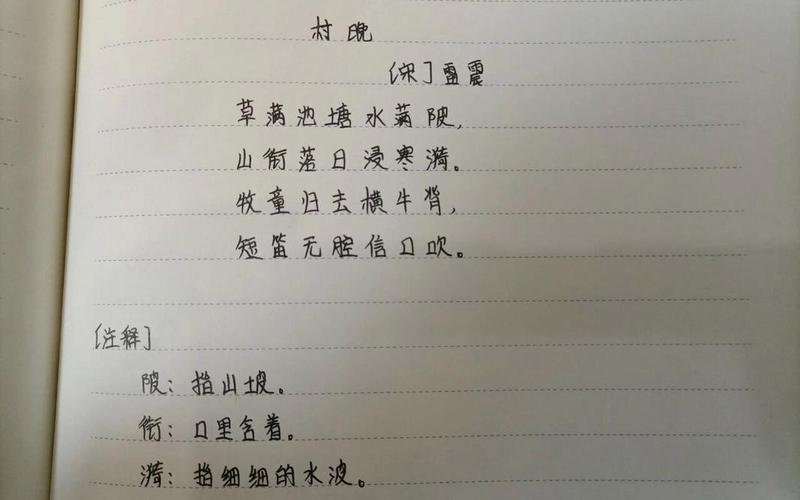 村晚
[宋]雷震
草满池塘水满陂,
山衔落日浸寒漪。
牧童归去横牛背,
短笛无腔信口吹。
[注释]
陂：指山坡。
衔：口里含着。
漪：指细细的水波。